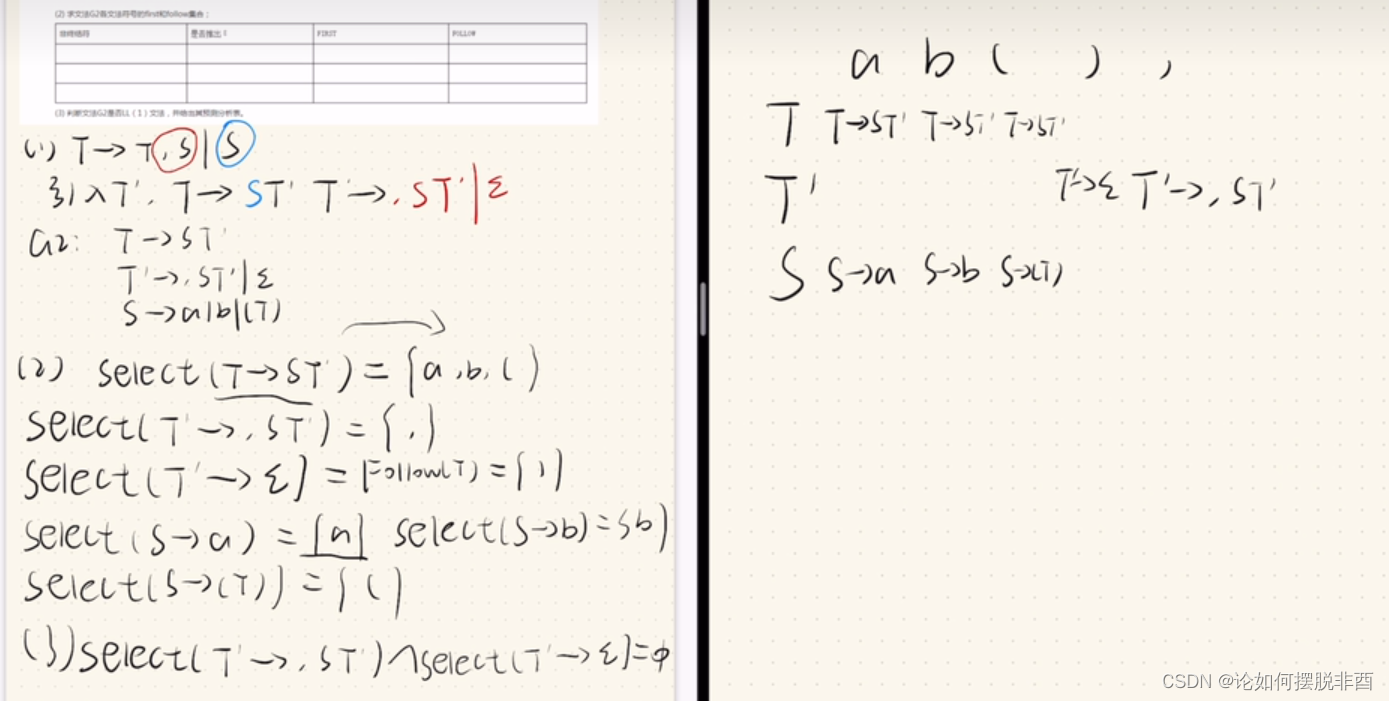 (2) 求文法G2各文法符号的first和follow集合：
非终结符 是否推出ε FIRST FOLLOW
(3) 判断文法G2是否LL（1）文法，并给出其预测分析表。
(1) T→T,S|S
引入T'. T→ST' T'→,ST'|ε
G2: T→ST'
T'→,ST'|ε
S→a|b|(T)
(2) select(T→ST')={a,b,(}
select(T'→,ST')={,}
select(T'→ε}=Follow(T)={)}
select(S→a)={a} select(S→b)={b}
select(S→(T)}={(}
(3)select(T'→,ST')∩select(T'→ε}=φ
a b ( ) ,
T T→ST' T→ST' T→ST'
T' T'→ε T'→,ST'
S S→a S→b S→(T)
CSDN @论如何摆脱非酋